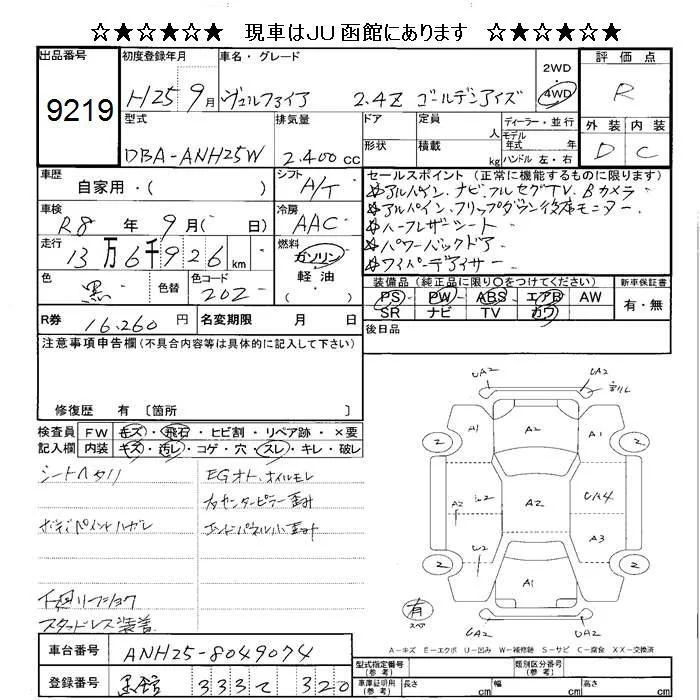 ☆★☆★☆★ 現車はJU函館にあります ☆★☆★☆★
出品番号 9219
初度登録年月 H25 9月
車名・グレード ヴェルファイア 2.4Z ゴールデンアイズ
2WD
4WD
評価点 R
型式 DBA-ANH25W
排気量 2.400cc
ドア
形状
定員 人
積載 kg
ディーラー・並行
モデル年式 年式
ハンドル 左・右
外装 内装
D C
車歴 自家用・( )
シフト A/T
車検 R8年 9月( 日)
冷房 AAC
走行 13万6千926km
燃料 ガソリン・軽油( )
色 黒 色替
色コード 202
R券 16.260円
名変期限 月 日
セールスポイント(正常に機能するものに限ります)
☆アルパイン、ナビ、フルセグTV、Bカメラ
☆アルパイン、フリップダウン後席モニター
☆ハーフレザーシート
☆パワーバックドア
☆ワイパーデアイサー
装備品(純正品に限り○をつけてください)
PS PW ABS エアB AW
SR ナビ TV カワ
新車保証書 有・無
後日品
注意事項申告欄(不具合内容等は具体的に記入して下さい)
修復歴 有〔箇所 〕
検査員記入欄
FW キズ・飛石・ヒビ割・リペア跡・×要
内装 キズ・汚レ・コゲ・穴・スレ・キレ・破レ
シートヘタリ
EGオト、オイルモレ
センターピラー
エンドパネル小
ペイントハガレ
下廻リフショク
スタッドレス装着
UA2 UA2
A1 A2 A1
2 2
A2 A2 UA4
U2 A3
2 2
A1
UA2 UA2
有
スペア
A−キズ E−エクボ U−凹み W−補修跡 S−サビ C−腐食 XX−交換済
車台番号 ANH25-8049074
登録番号 函館 333 て 320
型式指定番号(参考)
類別区分番号(参考)
車庫証明用(参考) 長さ cm 幅 cm 高さ cm